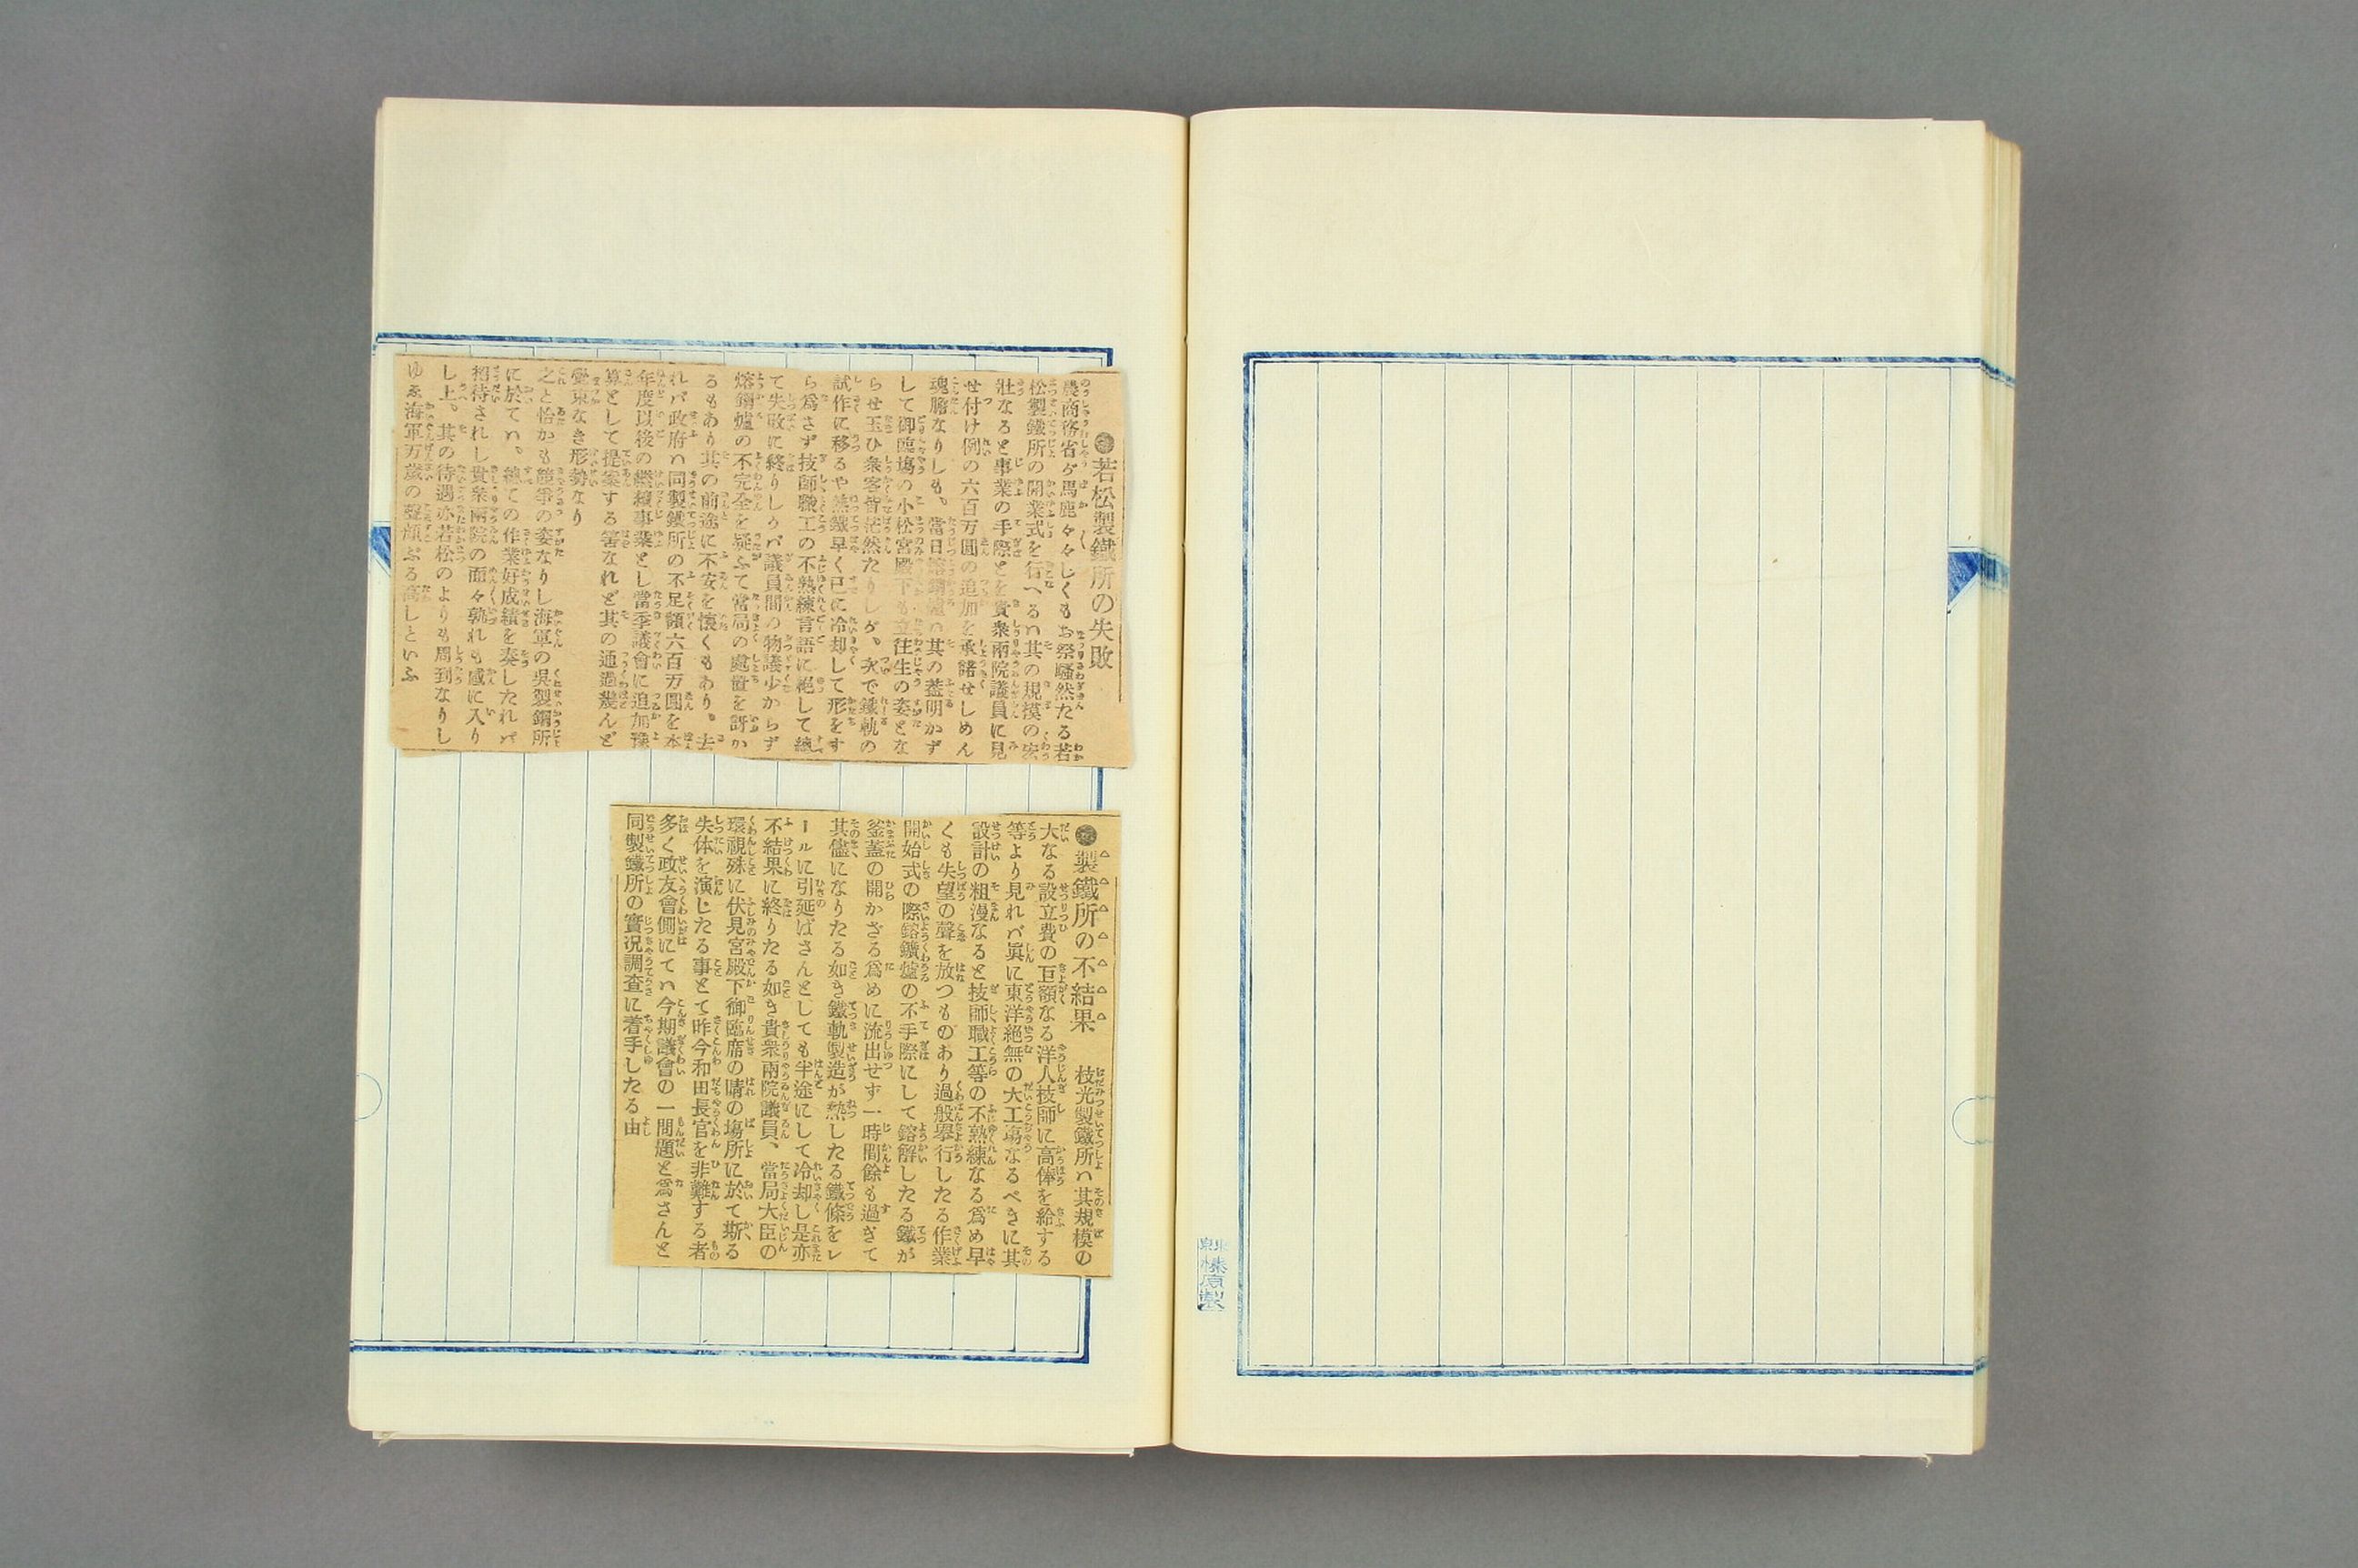 ◉若松製鐵所の失敗
農商務省が馬鹿々々しくもお祭騒然たる若
松製鐵所の開業式を行へるハ其の規摸の宏
壯なると事業の手際とを貴衆兩院議員に見
せ付け例の六百万圓の追加を承諾せしめん
魂膽なりしも。當日熔鑛爐ハ其の葢明かず
して御臨塲の小松宮殿下も立往生の姿とな
らせ玉ひ衆客皆茫然たりしが。次で鐵軌の
試作に移るや熱鐵早く已に冷却して形をす
ら爲さず技師職工の不熟練言語に絕して總
て失敗に終りしかバ議員間の物議少からず
熔鑛爐の不完全を疑ふて當局の處置を訝か
るもあり其の前途に不安を懷くもあり。去
れバ政府ハ同製鐵所の不足額六百万圓を本
年度以後の繼續事業とし當季議會に追加豫
算として提案する筈なれど其の通過幾んど
覺束なき形勢なり
之と恰かも競爭の姿なりし海軍の吳製鋼所
に於てハ。總ての作業好成績を奏したれバ
招待されし貴衆兩院の面々孰れも感に入り
し上。其の待遇亦若松のよりも周到なりし
ゆゑ海軍万歲の聲頗ぶる高しといふ
◉製鐵所の不結果　枝光製鐵所ハ其規模の
大なる設立費の巨額なる洋人技師に高俸を給する
等より見れバ眞に東洋絕無の大工塲なるべきに其
設計の粗漫なると技師職工等の不熟練なる爲め早
くも失望の聲を放つものあり過般擧行したる作業
開始式の際鎔鑛爐の不手際にして鎔解したる鐵が
釜葢の開かざる爲めに流出せず一時間餘も過ぎて
其儘になりたる如き鐵軌製造が熱したる鐵條をレ
ールに引延ばさんとしても半途にして冷却し是亦
不結果に終りたる如き貴衆兩院議員、當局大臣の
環視殊に伏見宮殿下御臨席の晴の塲所に於て斯る
失体を演じたる事とて昨今和田長官を非難する者
多く政友會側にてハ今期議會の一問題と爲さんと
同製鐵所の實況調查に着手したる由
東京榛原製